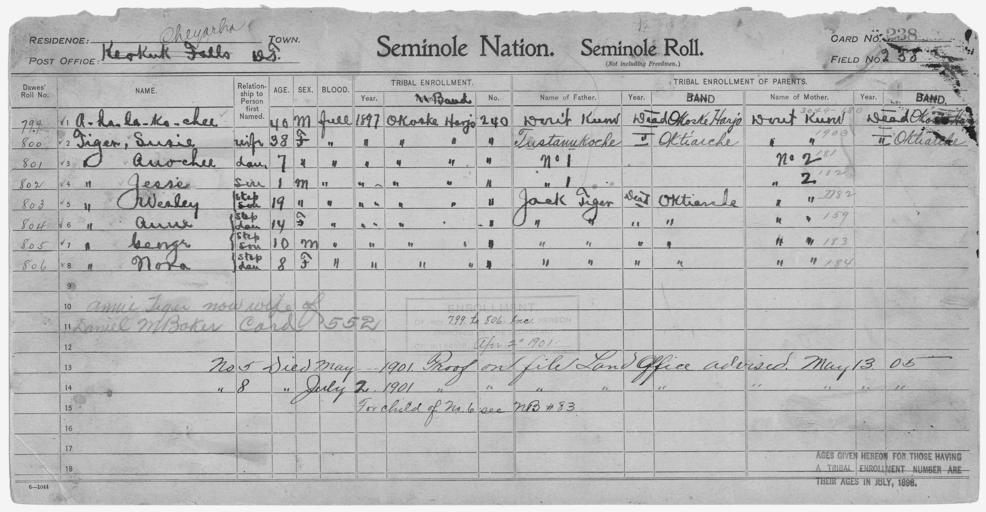 Cheyarha
RESIDENCE: TOWN.
POST OFFICE: Keokuk Falls O.T.
Seminole Nation. Seminole Roll.
(Not including Freedmen.)
CARD NO. 238
FIELD NO. 238
Dawes' Roll No. NAME. Relationship to Person first Named. AGE. SEX. BLOOD. TRIBAL ENROLLMENT. TRIBAL ENROLLMENT OF PARENTS.
Year. Band No. Name of Father. Year. BAND Name of Mother. Year. BAND.
799 1 A-ha-la-ko-chee 40 M full 1897 Okoske Harjo 240 Don't Know Dead Okoske Harjo Don't Know Dead Okoske
800 2 Tiger, Susie wife 38 F " " " " " Tustanukoche " Oktiarche " Oktiarche
801 3 " dau 7 " " " " " " No 1 No 2
802 4 " Jessie Son 1 M " " " " " " 1 " 2
803 5 " Wesley step son 19 " " " " " " Jack Tiger Dead Oktiarche " "
804 6 " Annie step dau 14 F " " " " " " " " " " " 159
805 7 " George step son 10 M " " " " " " " " " " " 183
806 8 " Nora step dau 8 F " " " " " " " " " " " 184
9
10 Annie Tiger now wife of
11 Daniel M Baker Card 552
ENROLLMENT
799 to 806 Inc
Apr 2 1901
12
13 No 5 Died May 1901 Proof on file Land Office advised. May 13 05
14 " 8 " July 2 1901 " " " " " " " " "
15 For child of No. 6 see NB # 83
16
17
18
6—1044
AGES GIVEN HEREON FOR THOSE HAVING
A TRIBAL ENROLLMENT NUMBER ARE
THEIR AGES IN JULY, 1898.